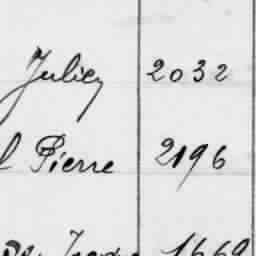 Julien 2032
l Pierre 2196
1669